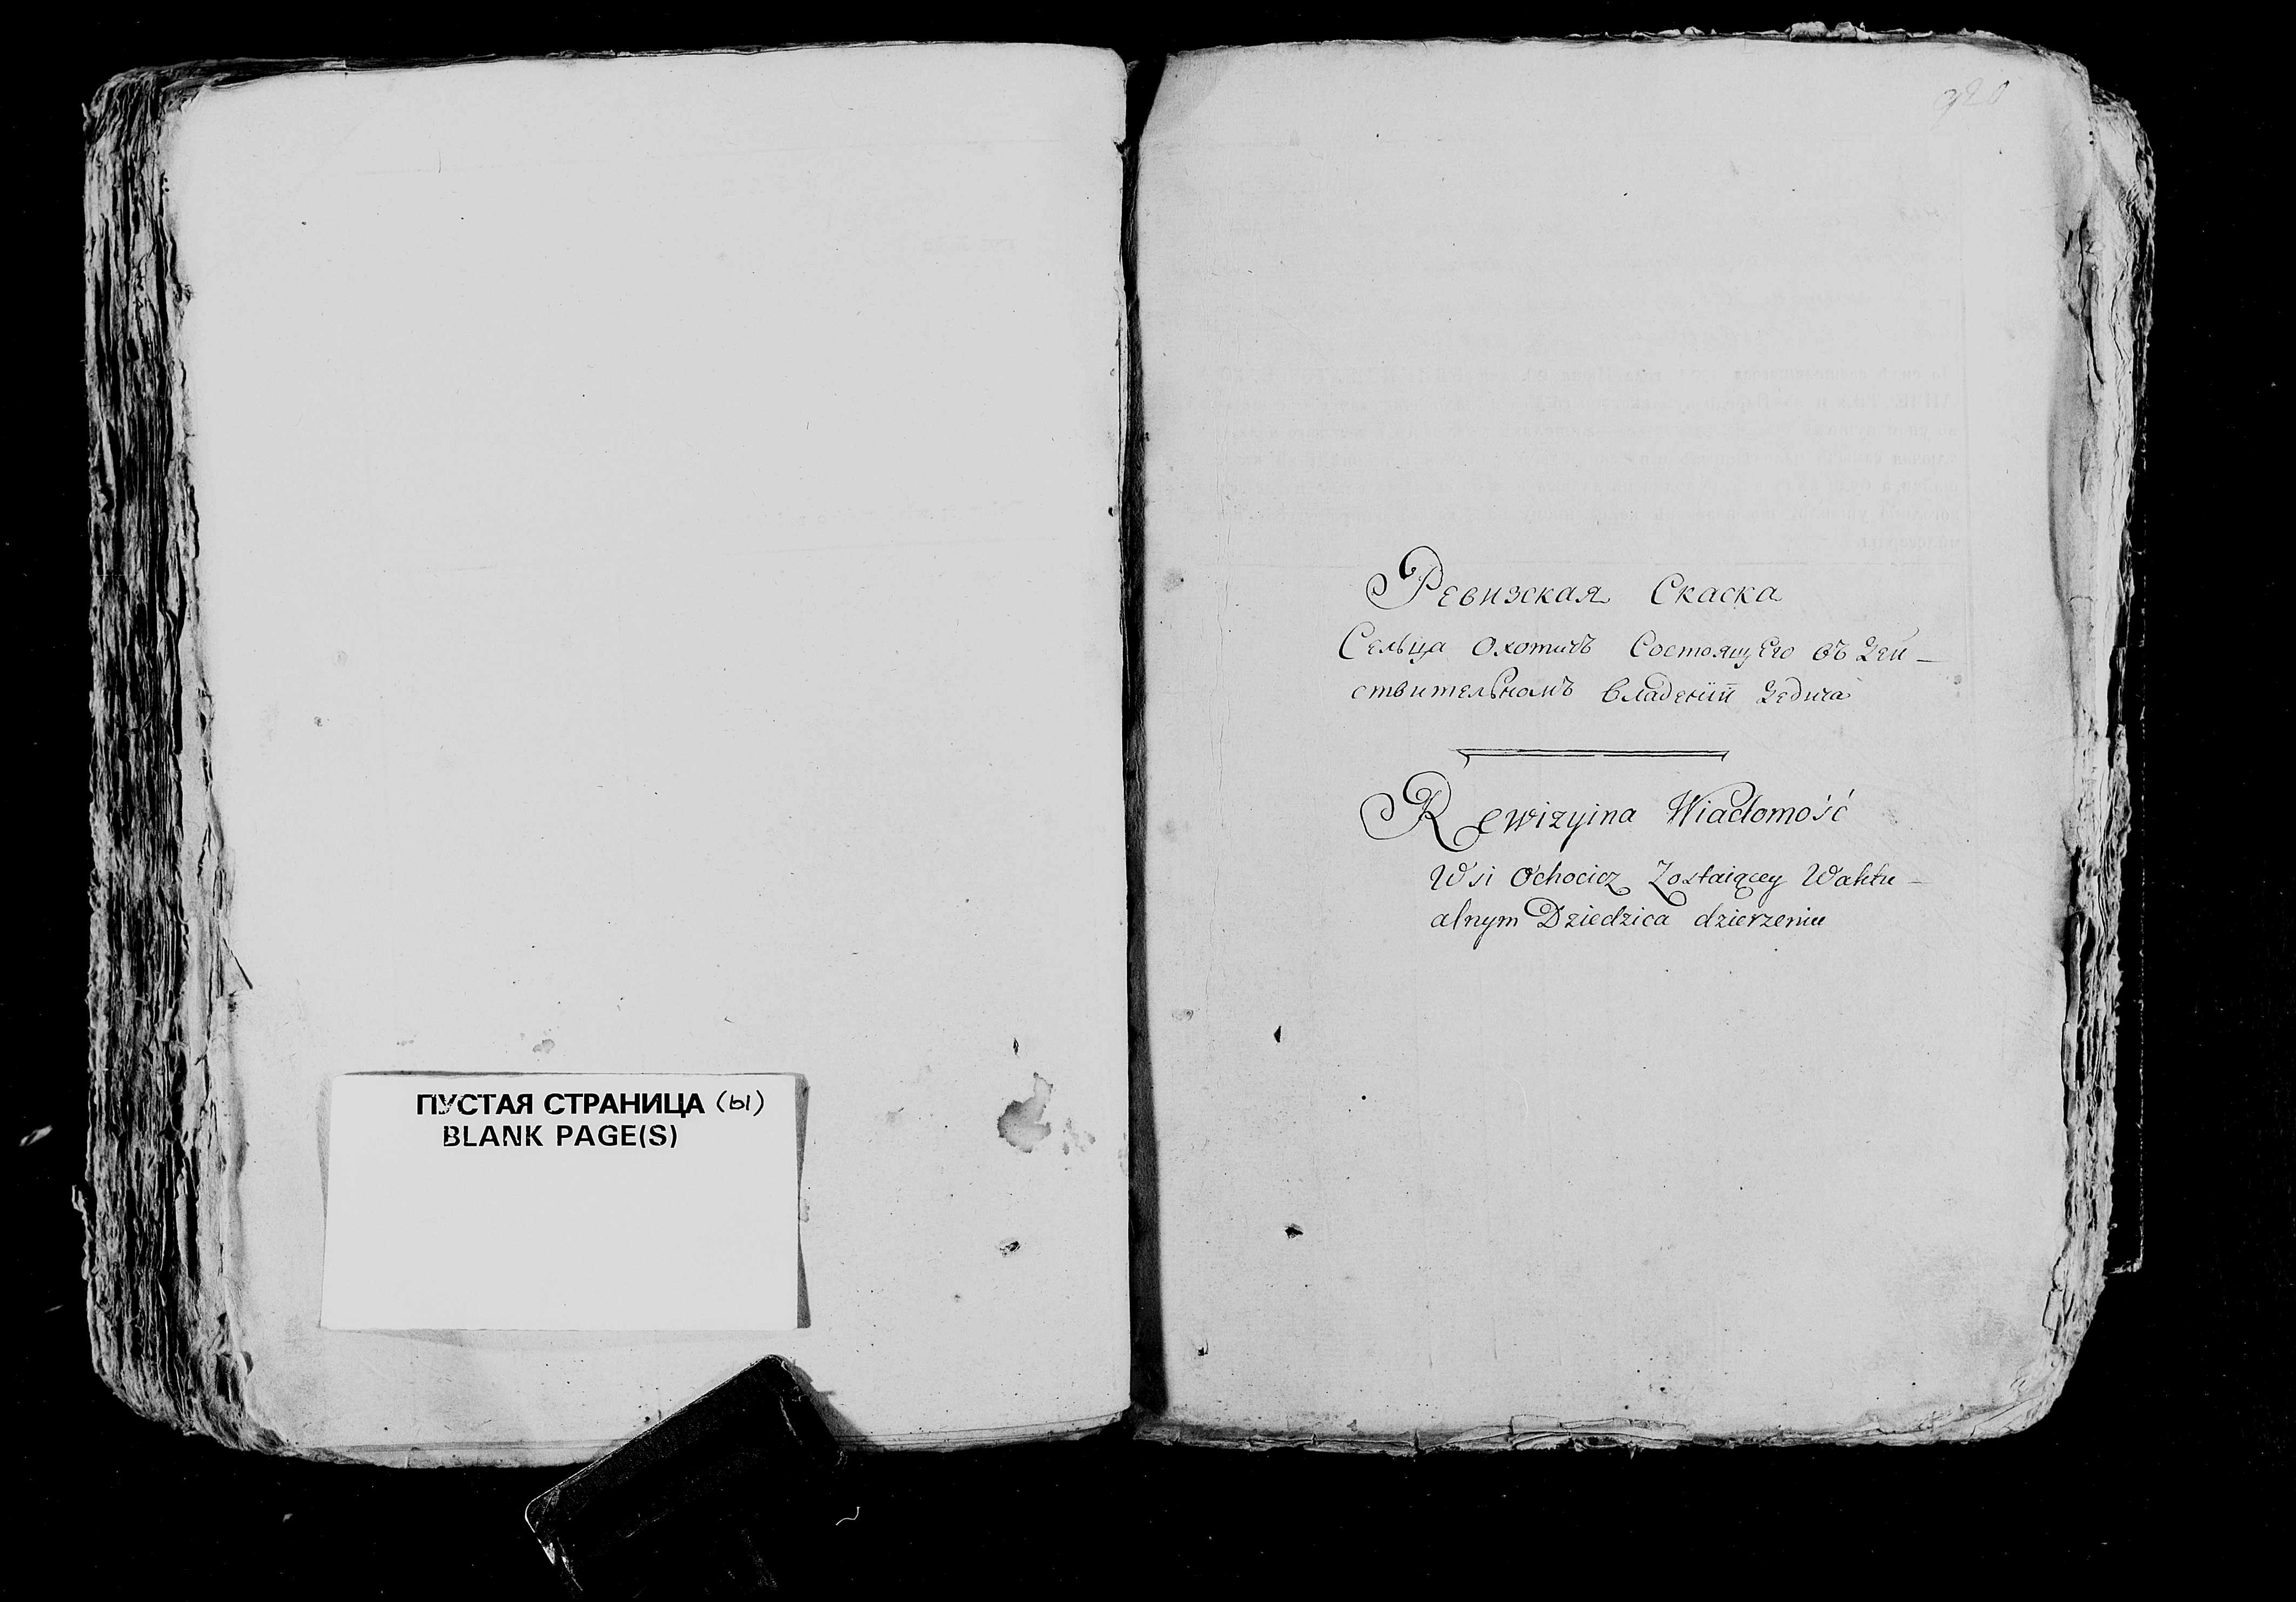 ПУСТАЯ СТРАНИЦА (ы)
BLANK PAGE(S)
920
Ревизская Скаска
Сельца Охотичъ Состоящего въ дей—
ствительномъ владенїи дедича
Rewizyina Wiadomość
Wsi Ochocicz Zostaiącey Waktu—
alnym Dziedzica dzierzeniu